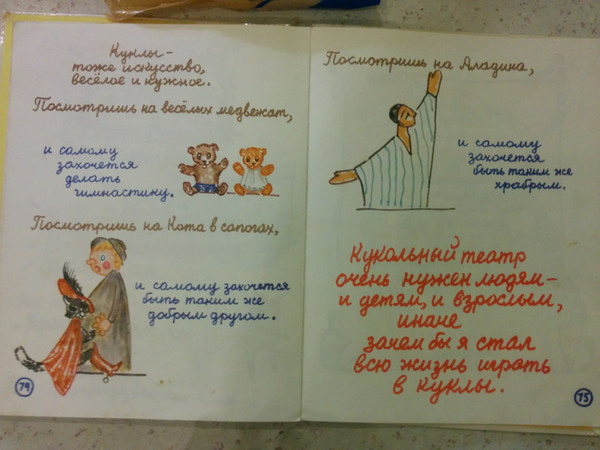 Куклы –
тоже искусство,
весёлое и нужное.
Посмотришь на весёлых медвежат,
и самому
захочется
делать
гимнастику.
Посмотришь на Кота в сапогах,
и самому захочется
быть таким же
добрым другом.
74
Посмотришь на Аладина,
и самому
захочется
быть таким же
храбрым.
Кукольный театр
очень нужен людям –
и детям, и взрослым,
иначе
зачем бы я стал
всю жизнь играть
в куклы.
75